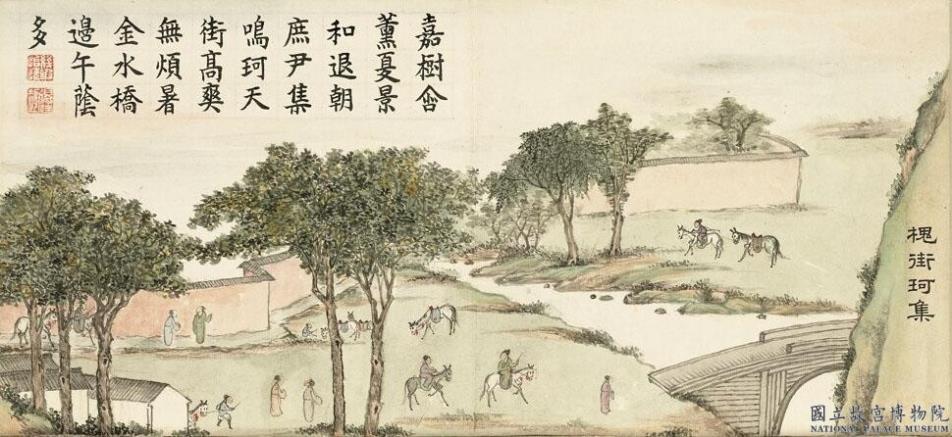 嘉樹含
薰夏景
和退朝
庶尹集
鳴珂天
街髙爽
無煩暑
金水橋
邊午蔭
多
槐街珂集
國立故宮博物院
NATIONAL PALACE MUSEUM